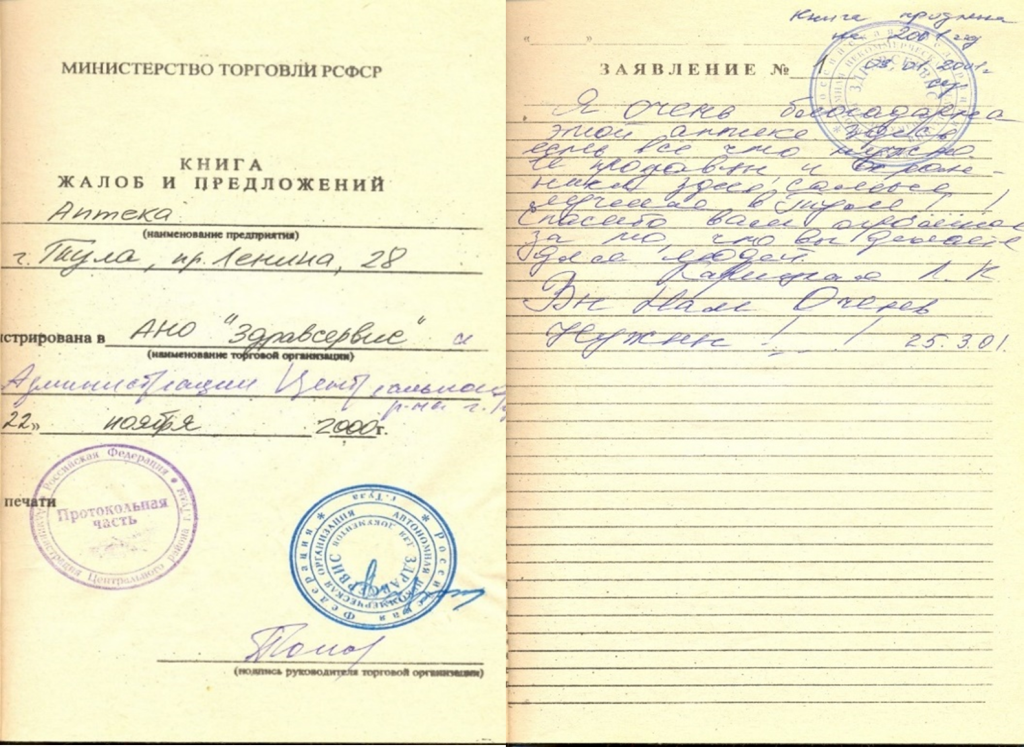 МИНИСТЕРСТВО ТОРГОВЛИ РСФСР
КНИГА
ЖАЛОБ И ПРЕДЛОЖЕНИЙ
Аптека
(наименование предприятия)
г. Тула, пр. Ленина, 28
истрирована в АНО "Здравсервис" и
(наименование торговой организации)
Администрации Центрального
р-на г.
22» ноября 2000г.
печати
Российская Федерация
Протокольная
часть
Администрация Центрального района г. Тулы
Российская Федерация
г. Тула
АВТОНОМНАЯ НЕКОММЕРЧЕСКАЯ ОРГАНИЗАЦИЯ
ЗДРАВСЕРВИС
(подпись руководителя торговой организации)
Книга продлена
на 2001 год
ЗАЯВЛЕНИЕ № 1 03.01.2001г.
Я очень благодарна
этой аптеке здесь
есть все что нужно.
И продавцы и
здесь самые
лучшие в Туле!!
Спасибо вам
за то что вы делаете
для людей.
Л. К
Вы Нам Очень
Нужны!! 25.3.01.